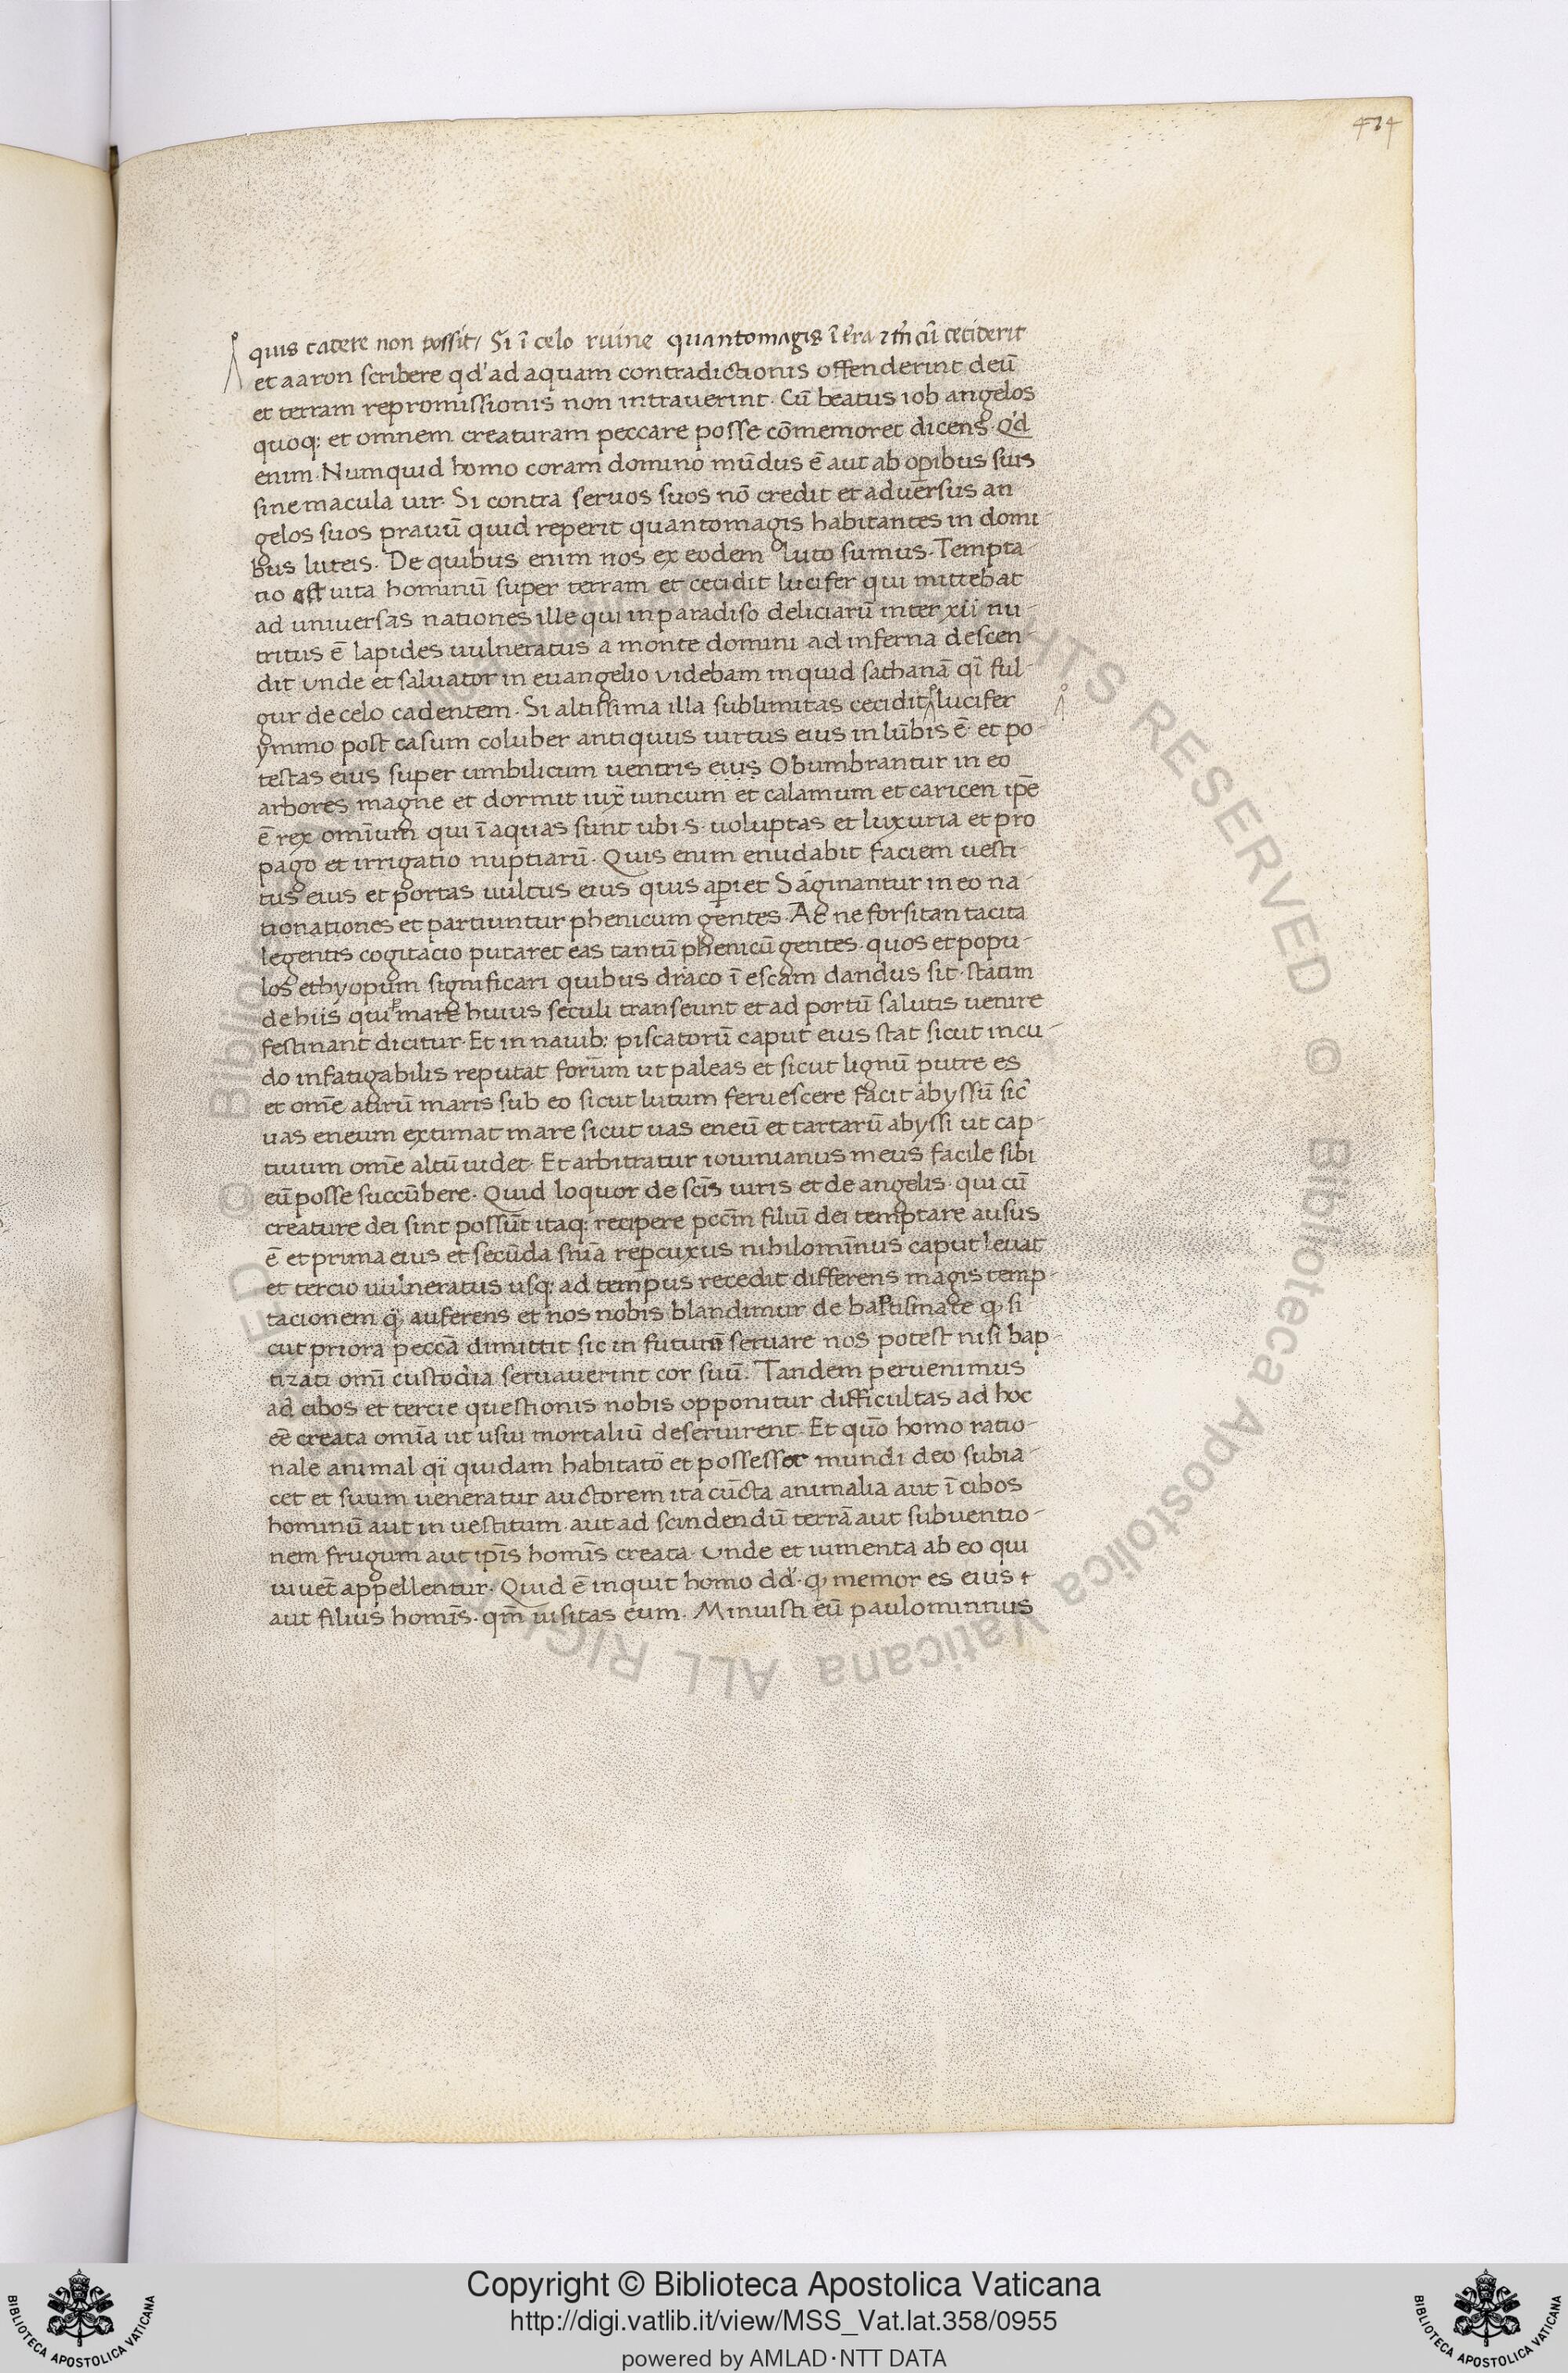 474
quis cadere non possit / Si ī celo ruine quantomagis ī t̄ra
et aaron scribere qd' ad aquam contradictionis offenderint deū
et terram repromissionis non intrauerint · Cū beatus iob angelos
quoq; et omnem creaturam peccare posse cōmemoret dicens · Qd
enim · Numquid homo coram domino mūdus ē aut ab op̄ibus suis
sine macula uir · Si contra seruos suos nō credit et aduersus an
gelos suos prauū quid reperit quantomagis habitantes in domi-
bus luteis · De quibus enim nos ex eodem luto sumus · Tempta-
tio est uita hominū super terram et cecidit lucifer qui mittebat
ad uniuersas nationes ille qui in paradiso deliciarū inter xii nu-
tritus ē lapides uulneratus a monte domini ad inferna descen-
dit unde et saluator in euangelio videbam inquid sathanā qī ful-
gur de celo cadentem · Si altissima illa sublimitas cecidit lucifer
ymmo post casum coluber antiquus uirtus eius in lūbis ē et po-
testas eius super umbilicum uentris eius Obumbrantur in eo
arbores magne et dormit iux̄ iuncum et calamum et caricen ip̄e
ē rex omīum qui ī aquas sunt ubi · s · uoluptas et luxuria et pro
pago et irrigatio nuptiarū · Quis enim enudabit faciem uesti-
tus eius et portas uultus eius quis ap̄iet Saginantur in eo na-
tionationes et partiuntur phenicum gentes · Ac ne forsitan tacita
legentis cogitacio putaret eas tantū phenicū gentes · quos et popu-
los ethyopum significari quibus draco ī escam dandus sit · statim
de hiis qui p mare huius seculi transeunt et ad portū salutis uenire
festinant dicitur · Et in nauib; piscatorū caput eius stat sicut incu-
do infatigabilis reputat forum ut paleas et sicut lignū putre es
et om̄e aurū maris sub eo sicut lutum feruescere facit abyssū sic̄
uas eneum extimat mare sicut uas eneū et tartarū abyssi ut cap-
tiuum om̄e altū uidet · Et arbitratur iouinianus meus facile sibi
eū posse succūbere · Quid loquor de sc̄is uiris et de angelis · qui cū
creature dei sint possūt itaq; recipere pcc̄m filiū dei temptare ausus
ē et prima eius et secūda sn̄ia repcuxus nihilominus caput leuat
et tercio uulneratus usq; ad tempus recedit differens magis temp-
tacionem q̄ auferens et nos nobis blandimur de baptismate q, si
cut priora peccā dimittit sic in futurū seruare nos potest nisi bap-
tizati omī custodia seruauerint cor suū · Tandem peruenimus
ad cibos et tercie questionis nobis opponitur difficultas ad hoc
eē creata omīa ut usui mortaliū deseruirent · Et quō homo ratio-
nale animal qī quidam habitato et possessor mundi deo subia-
cet et suum ueneratur auctorem ita cūcta animalia aut ī cibos
hominū aut in uestitum · aut ad scindendū terrā aut subuentio-
nem frugum aut ip̄is homīs creata · Unde et iumenta ab eo qui
iuuet appellentur · Quid ē inquit homo dd' · q, memor es eius
aut filius homīs · qm̄ uisitas eum · Minuisti eū paulominnus
Copyright © Biblioteca Apostolica Vaticana
http://digi.vatlib.it/view/MSS_Vat.lat.358/0955
powered by AMLAD·NTT DATA
BIBLIOTECA APOSTOLICA VATICANA
BIBLIOTECA APOSTOLICA VATICANA